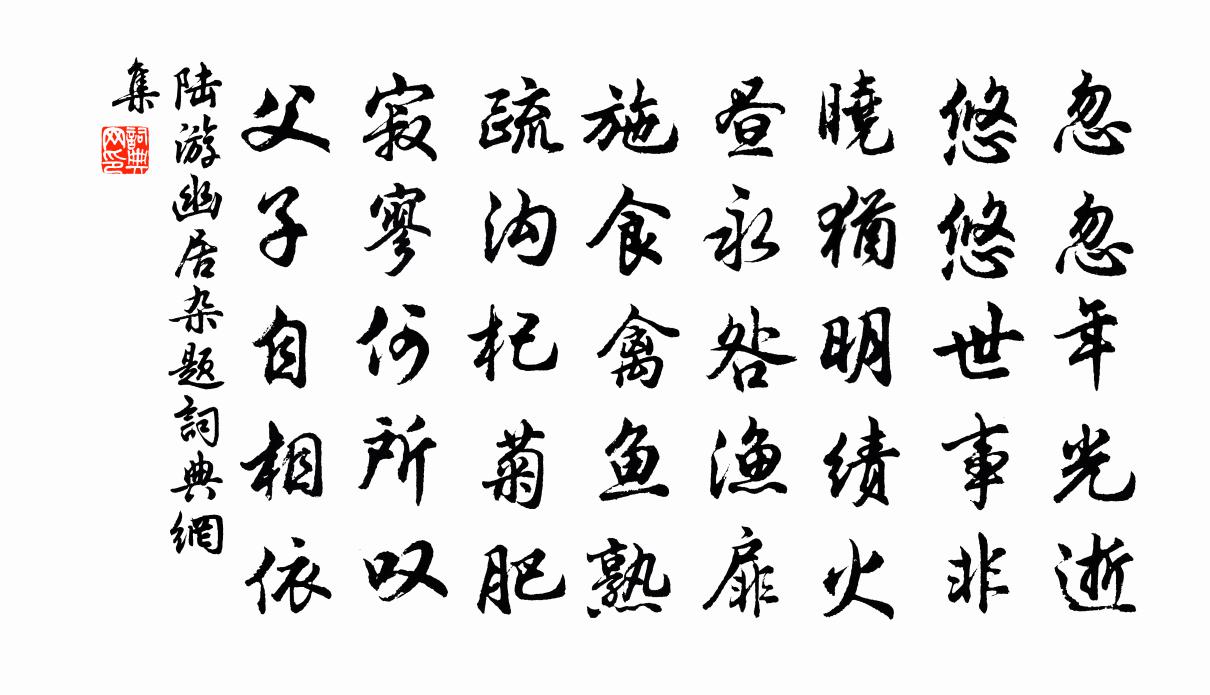 忽忽年光逝
悠悠世事非
曉猶明績火
昼永咎渔扉
施食禽鱼熟
疏沟杞菊肥
寂寥何所叹
父子自相依
陆游幽居杂题詞典網
集
詞典
网印